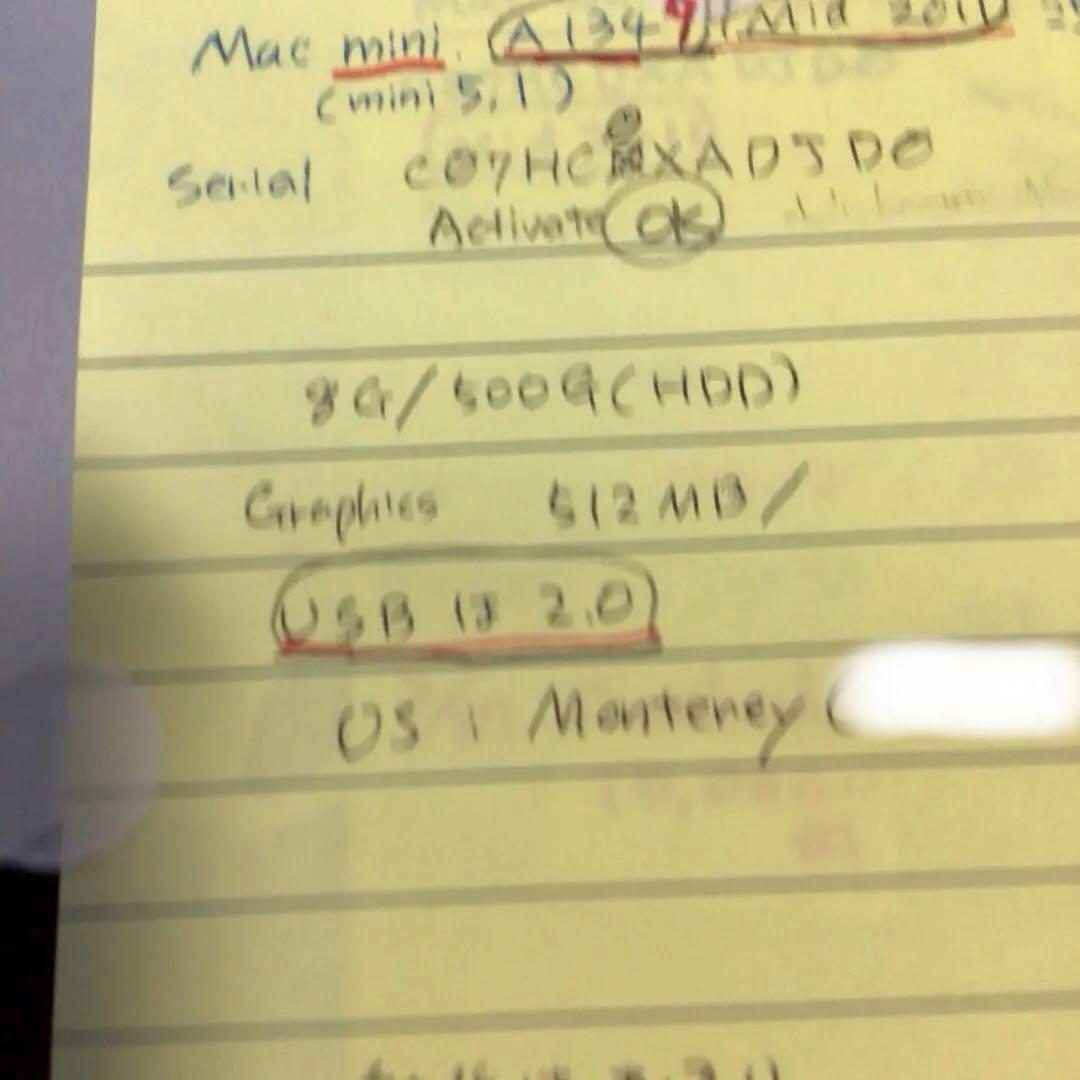 Mac mini. (A1347) (Mid 2011)
(mini 5,1)
Serial C07HC0XADJD0
Activate OK
8G/500G(HDD)
Graphics 512MB/
USB は 2.0
OS : Monterey (